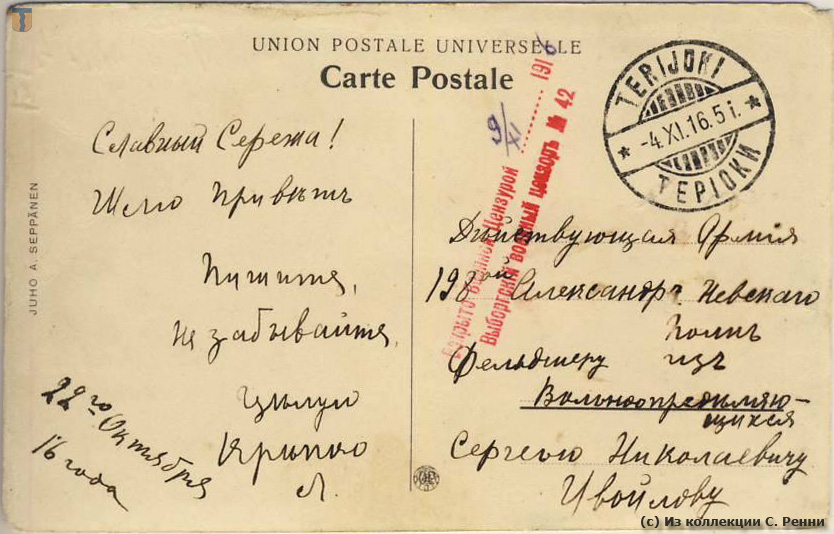 UNION POSTALE UNIVERSELLE
Carte Postale
JUHO A. SEPPÄNEN
Славный Сережа!
Шлю Привѣтъ
Пишите,
Не забывайте,
Цѣлую
Крѣпко
Л.
22го Октября
16 года
Вскрыто Военной Цензурой
9/XI 1916
Выборгскій военный цензоръ № 42
TERIJOKI
-4.XI.16.5 i.
ТЕРІОКИ
Дѣйствующая Армія
198ой Александръ Невскаго
Полкъ
Фельдшеру изъ
Вольноопредѣляю-
щихся
Сергѣю Николаевичу
Ивойлову
(c) Из коллекции С. Ренни